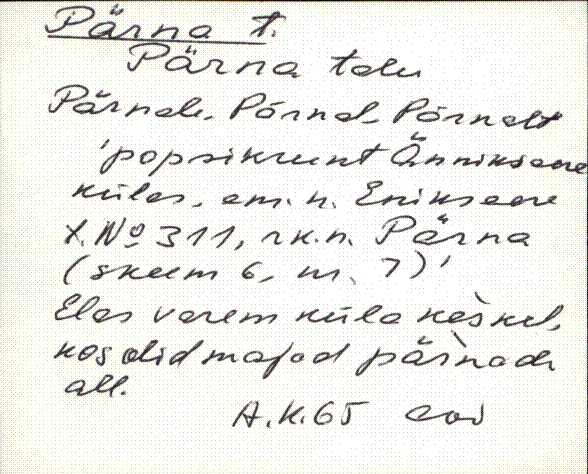 Pärna t.
Pärna talu
Pärnale, Pärnal, Pärnalt
'popsikrunt Änniksaare
külas, am. n. Eniksaare
X. № 311, rk.n. Pärna
(skeem 6, nr. 7)'
Elas varem küla keskel,
kos olid majad pärnade
all.
A.K.65